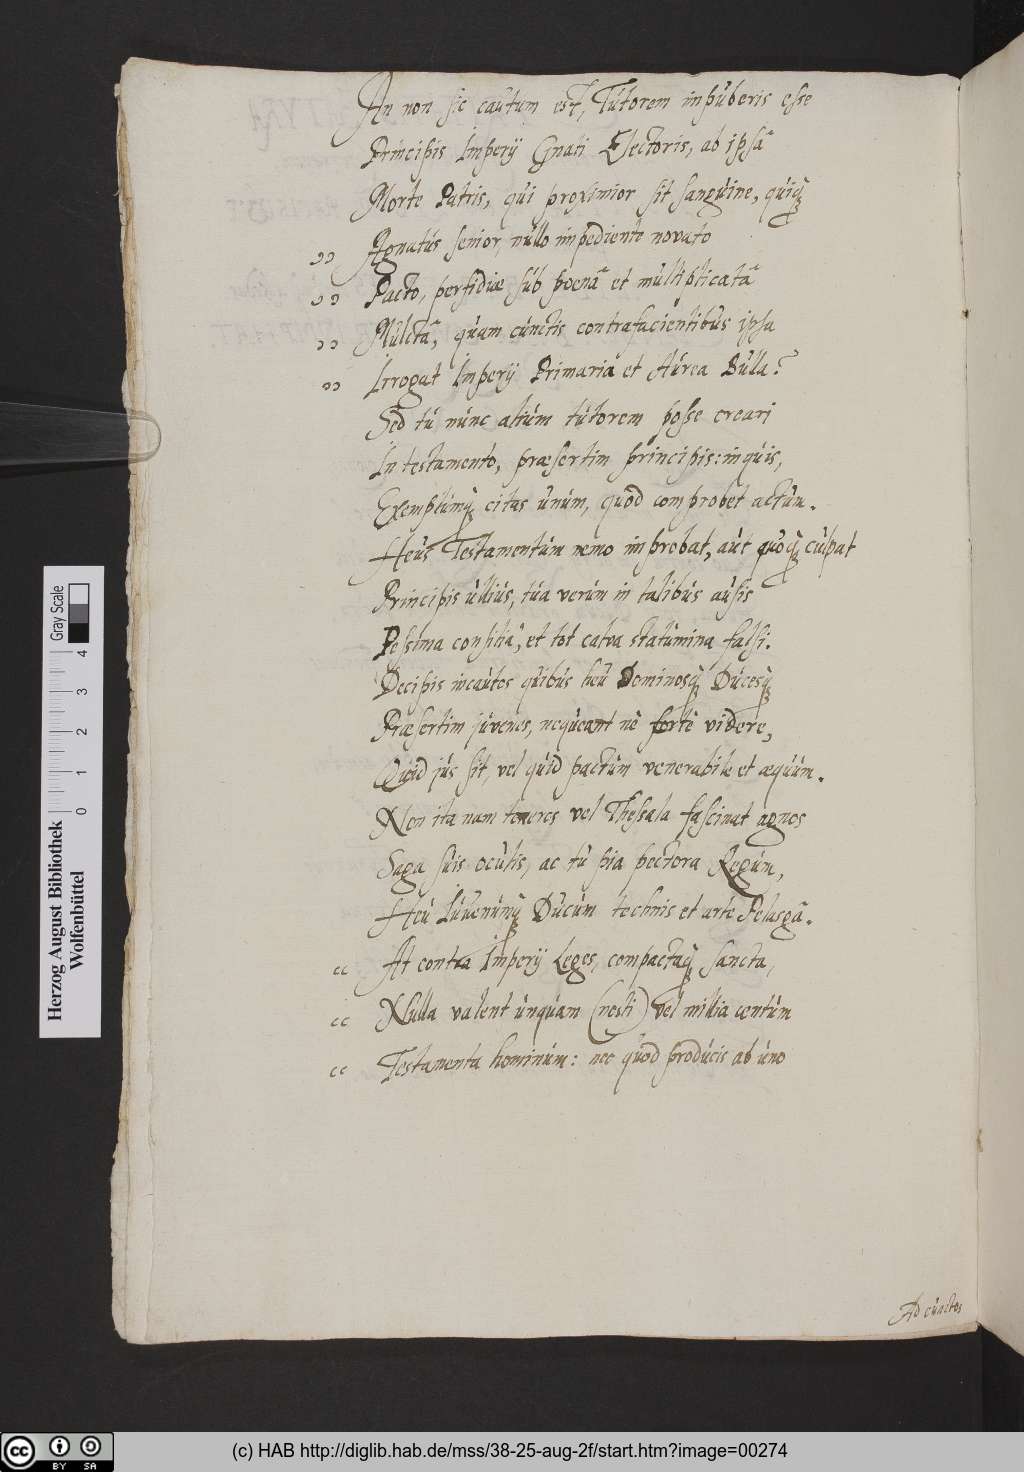 An non sic cautum est, Tutorem impuberis esse
Principis Imperij Gnati Electoris, ab ipsâ
Morte Patris, qui proximior sit sanguine, quiq꜄
Agnatus senior, nullo impediente novato
Pacto, perfidiæ sub poenâ et multiplicatâ
Mulctâ, quam cunctis contrafacientibus ipsa
Irrogat Imperij Primaria et Aurea Bulla?
Sed tu nunc alium tutorem posse creari
In testamento, præsertim principis: inquis,
Exemplumq꜄ citas unum, quod comprobet actum.
Heus Testamentum nemo improbat, aut quoq꜄ culpat
Principis ullius, tua verum in talibus ausis
Pessima consilia, et tot calva statumina falsi:
Decipis incautos quibus heu Dominosq꜄ Ducesq꜄
Præsertim juvenes, nequeant ne fortè videre,
Quid jus sit, vel quid pactum venerabile et æquum.
Non ita nam teneros vel Thessala fascinat agnos
Saga suis oculis, ac tu pia pectora Regum,
Heu Iuvenumq꜄ Ducum technis et arte Pelasgâ.
At contra Imperij Leges, compactaq꜄ sancta,
Nulla valent unquam (nosti) vel millia centum
Testamenta hominum: nec quod producis ab uno
Ad cunctos
Herzog August Bibliothek
Wolfenbüttel
0 1 2 3 4
Gray Scale
cc BY SA
(c) HAB http://diglib.hab.de/mss/38-25-aug-2f/start.htm?image=00274